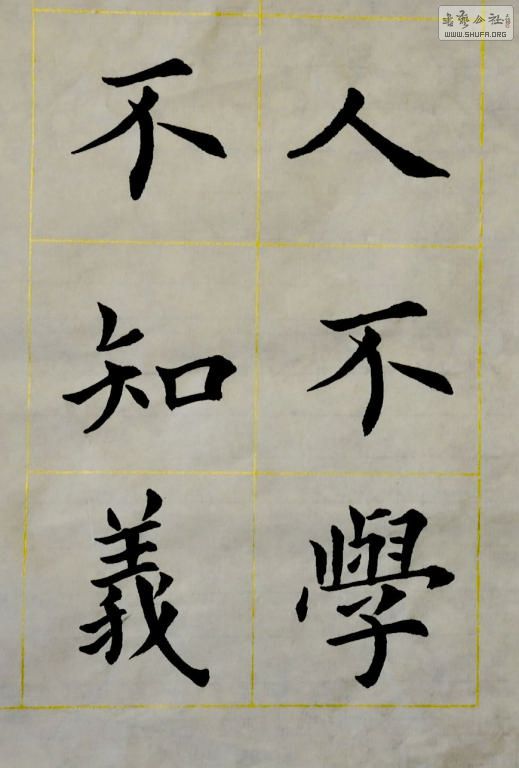 人不學
不知義
书艺公社
WWW.SHUFA.ORG